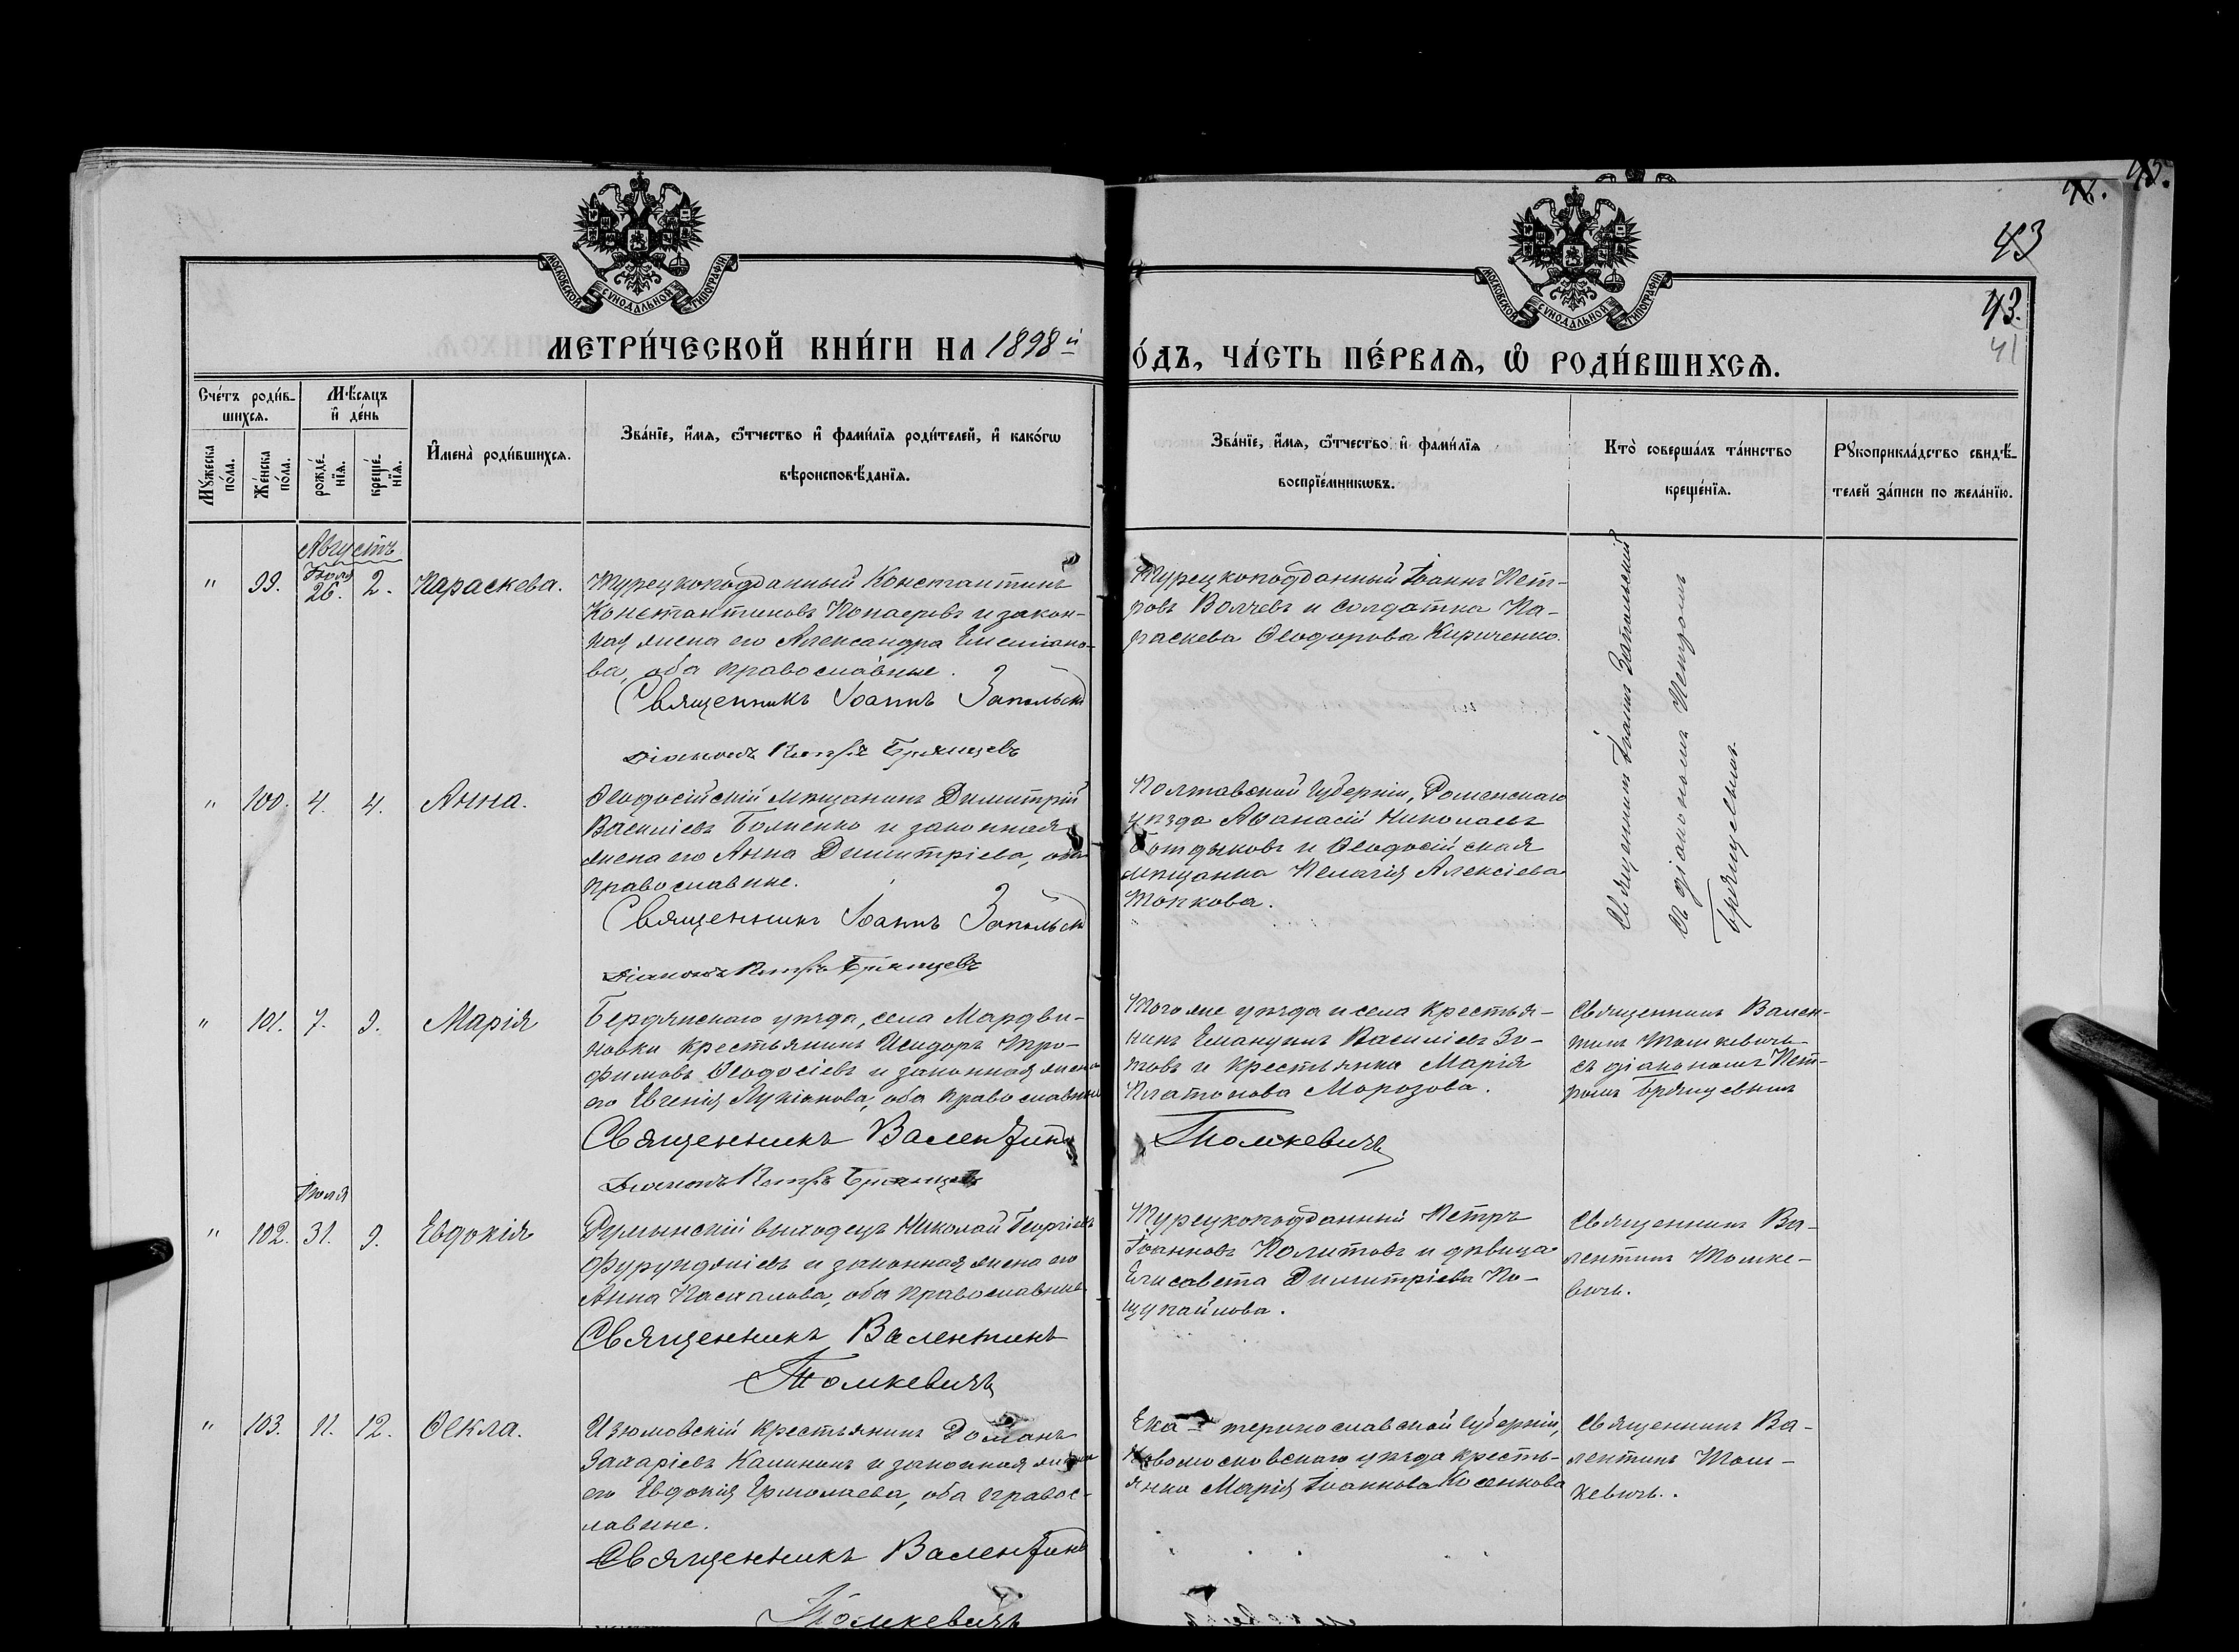 42. 43.
43
43.
41
МОСКОВСКОЙ СѴНОДАЛЬНОЙ ТИПОГРАФІИ
МОСКОВСКОЙ СѴНОДАЛЬНОЙ ТИПОГРАФІИ
МЕТРИ́ЧЕСКОЙ КНИ́ГИ НА 1898й
О́ДЪ, ЧА́СТЬ ПЕ́РВАЯ, Ѡ РОДИ́ВШИХСЯ.
Сче́тъ роди́в-
шихся.
Мѣ́сяцъ
и҆ де́нь
Мꙋ́жеска
по́ла.
Же́нска
по́ла.
рожде́-
нїя.
креще́-
нїя.
И҆мена̀ роди́вшихся.
Зва́нїе, и҆́мя, ѻ҆́тчество и҆ фами́лїя роди́телей, и҆ како́гѡ
вѣроисповѣ́данїя.
Зва́нїе, и҆́мя, ѻ҆́тчество и҆ фами́лїя
воспрїе́мникѡвъ.
Кто̀ соверша́лъ та́инство
креще́нїя.
Рꙋкоприкла́дство свидѣ́-
телей за́писи по жела́нїю.
Августъ
" 99. Іюля 26. 2. Параскева.
Турецкоподданный Константинъ
Константиновъ и закон-
ная жена его Александра Емельяно-
ва, оба православные.
Священникъ Іоаннъ Запольскій
Діаконъ Петръ Брянцевъ
Турецкоподданный Іоаннъ Пет-
ровъ Волчевъ и солдатка Па-
раскева Ѳеодорова Кириченко.
Священникъ Іоаннъ Запольскій
съ діакономъ Петромъ
Брянцевымъ
" 100. 4. 4. Анна.
Ѳеодосійскій мѣщанинъ Димитрій
Василіевъ и законная
жена его Анна Димитріева, оба
православные.
Священникъ Іоаннъ Запольскій
Діаконъ Петръ Брянцевъ
Полтавской губерніи, Роменскаго
уѣзда Аѳанасій Николаевъ
и Ѳеодосійская
мѣщанка Пелагія Алексіева
Топкова.
" 101. 7. 9. Марія
Бердянскаго уѣзда, села Мордви-
новки крестьянинъ Исидоръ Тро-
фимовъ Ѳеодосіевъ и законная жена
его Евгенія Лукіанова, оба православные
Священникъ Валентинъ
Томкевичъ
Діаконъ Петръ Брянцевъ
Того же уѣзда и села крестья-
нинъ Емануилъ Василіевъ Зо-
товъ и крестьянка Марія
Платонова Морозова.
Священникъ Вален-
тинъ Томкевичъ
съ діакономъ Пет-
ромъ Брянцевымъ
Іюля
" 102. 31. 9. Евдокія
Румынскій выходецъ Николай Георгіевъ
Фурунджіевъ и законная жена его
Анна Паскалова, оба православные
Священникъ Валентинъ
Томкевичъ
Турецкоподданный Петръ
Іоанновъ Политовъ и дѣвица
Елисавета Димитріева По-
Священникъ Ва-
лентинъ Томке-
вичъ.
" 103. 11. 12. Ѳекла.
Изюмовскій крестьянинъ Романъ
Захаріевъ Калининъ и законная жена
его Евдокія Ермолаева, оба правос-
лавные.
Священникъ Валентинъ
Томкевичъ
Ека-теринославской губерніи,
Новомосковскаго уѣзда кресть-
янка Марія Іоаннова Косенкова
Священникъ Ва-
лентинъ Том-
кевичъ.